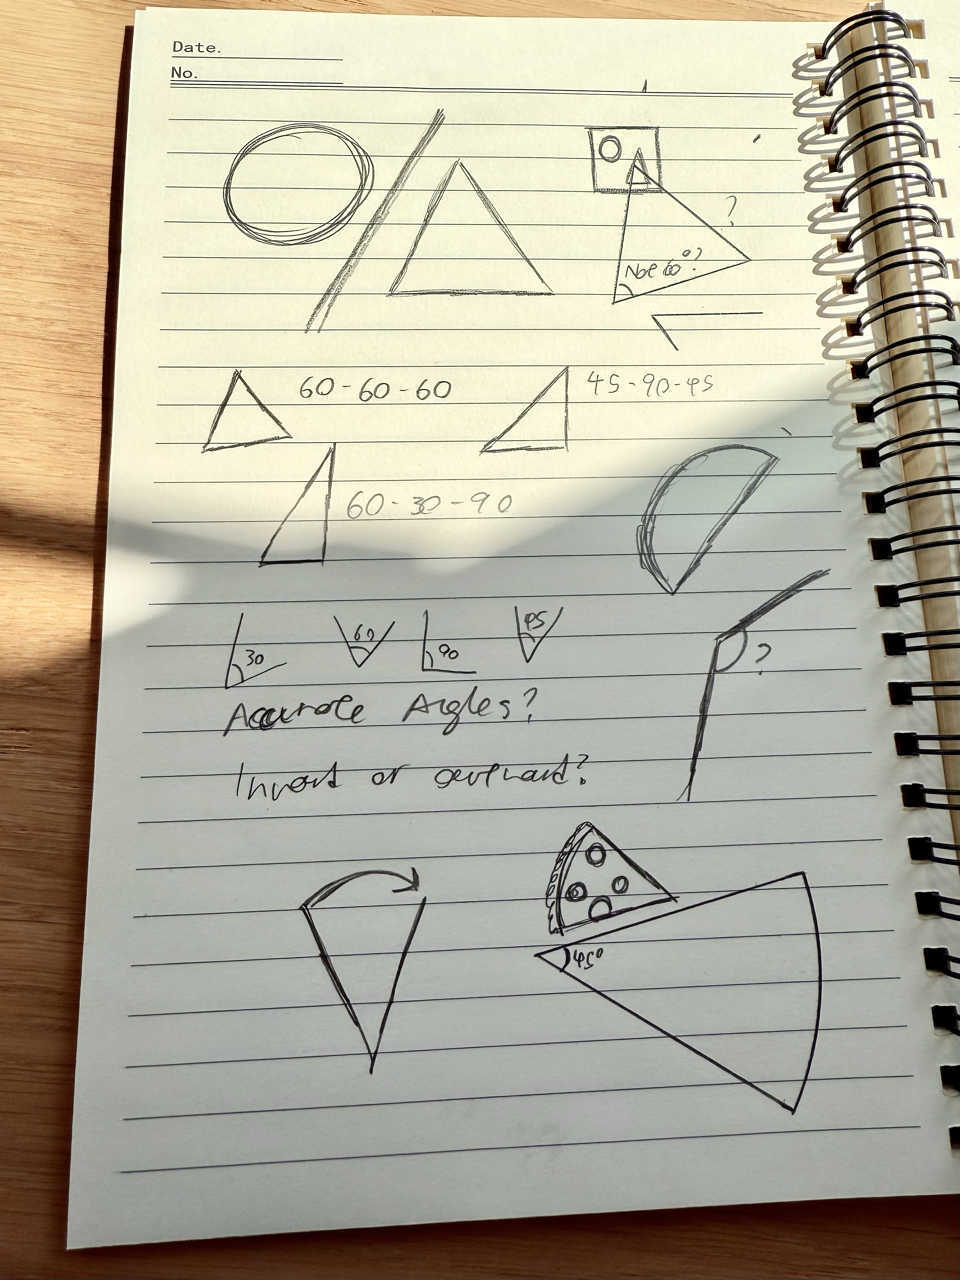 Date.
No.
?
Not 60°?
60-60-60
45-90-45
60-30-90
30
60
90
45
?
Accurate Angles?
Invert or overhand?
45°